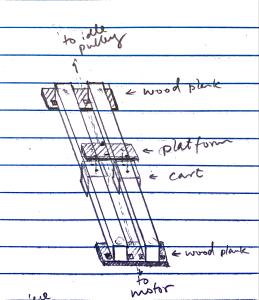 to idle
pulley
wood plank
platform
cart
wood plank
to
motor